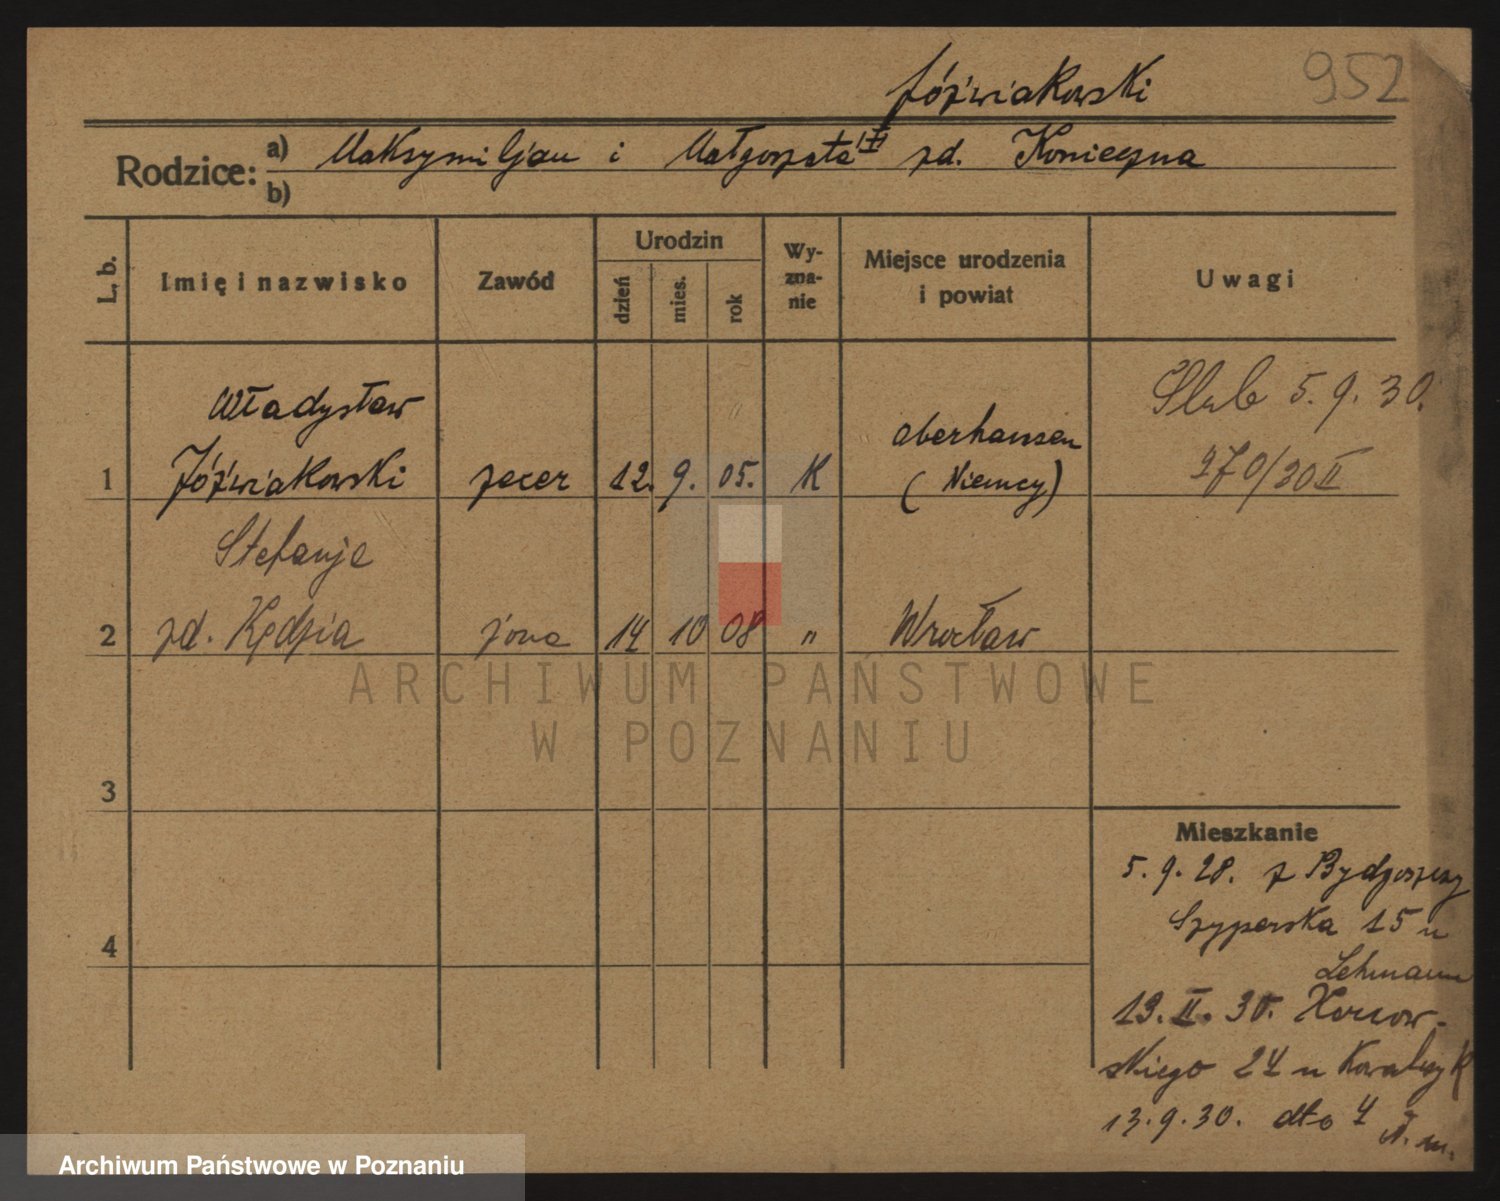 Jóźwiakowski 952
Rodzice: a) Maksymiljan i Małgorzata zd. Konieczna
b)
L. b. Imię i nazwisko Zawód Urodzin dzień mies. rok Wy-zna-nie Miejsce urodzenia i powiat Uwagi
Władysław Ślub 5. 9. 30.
1 Jóźwiakowski zecer 12. 9. 05. K Oberhausen (Niemcy) 270/30 II
Stefanja
2 zd. Kędzia żona 14 10 08 " Wrocław
ARCHIWUM PAŃSTWOWE
W POZNANIU
3
Mieszkanie
5. 9. 28. z Bydgoszczy
Szyperska 15 u
4
Lehmann
13. II. 30.
skiego 24 u Kowalczyk
13. 9. 30. dto 4
Archiwum Państwowe w Poznaniu